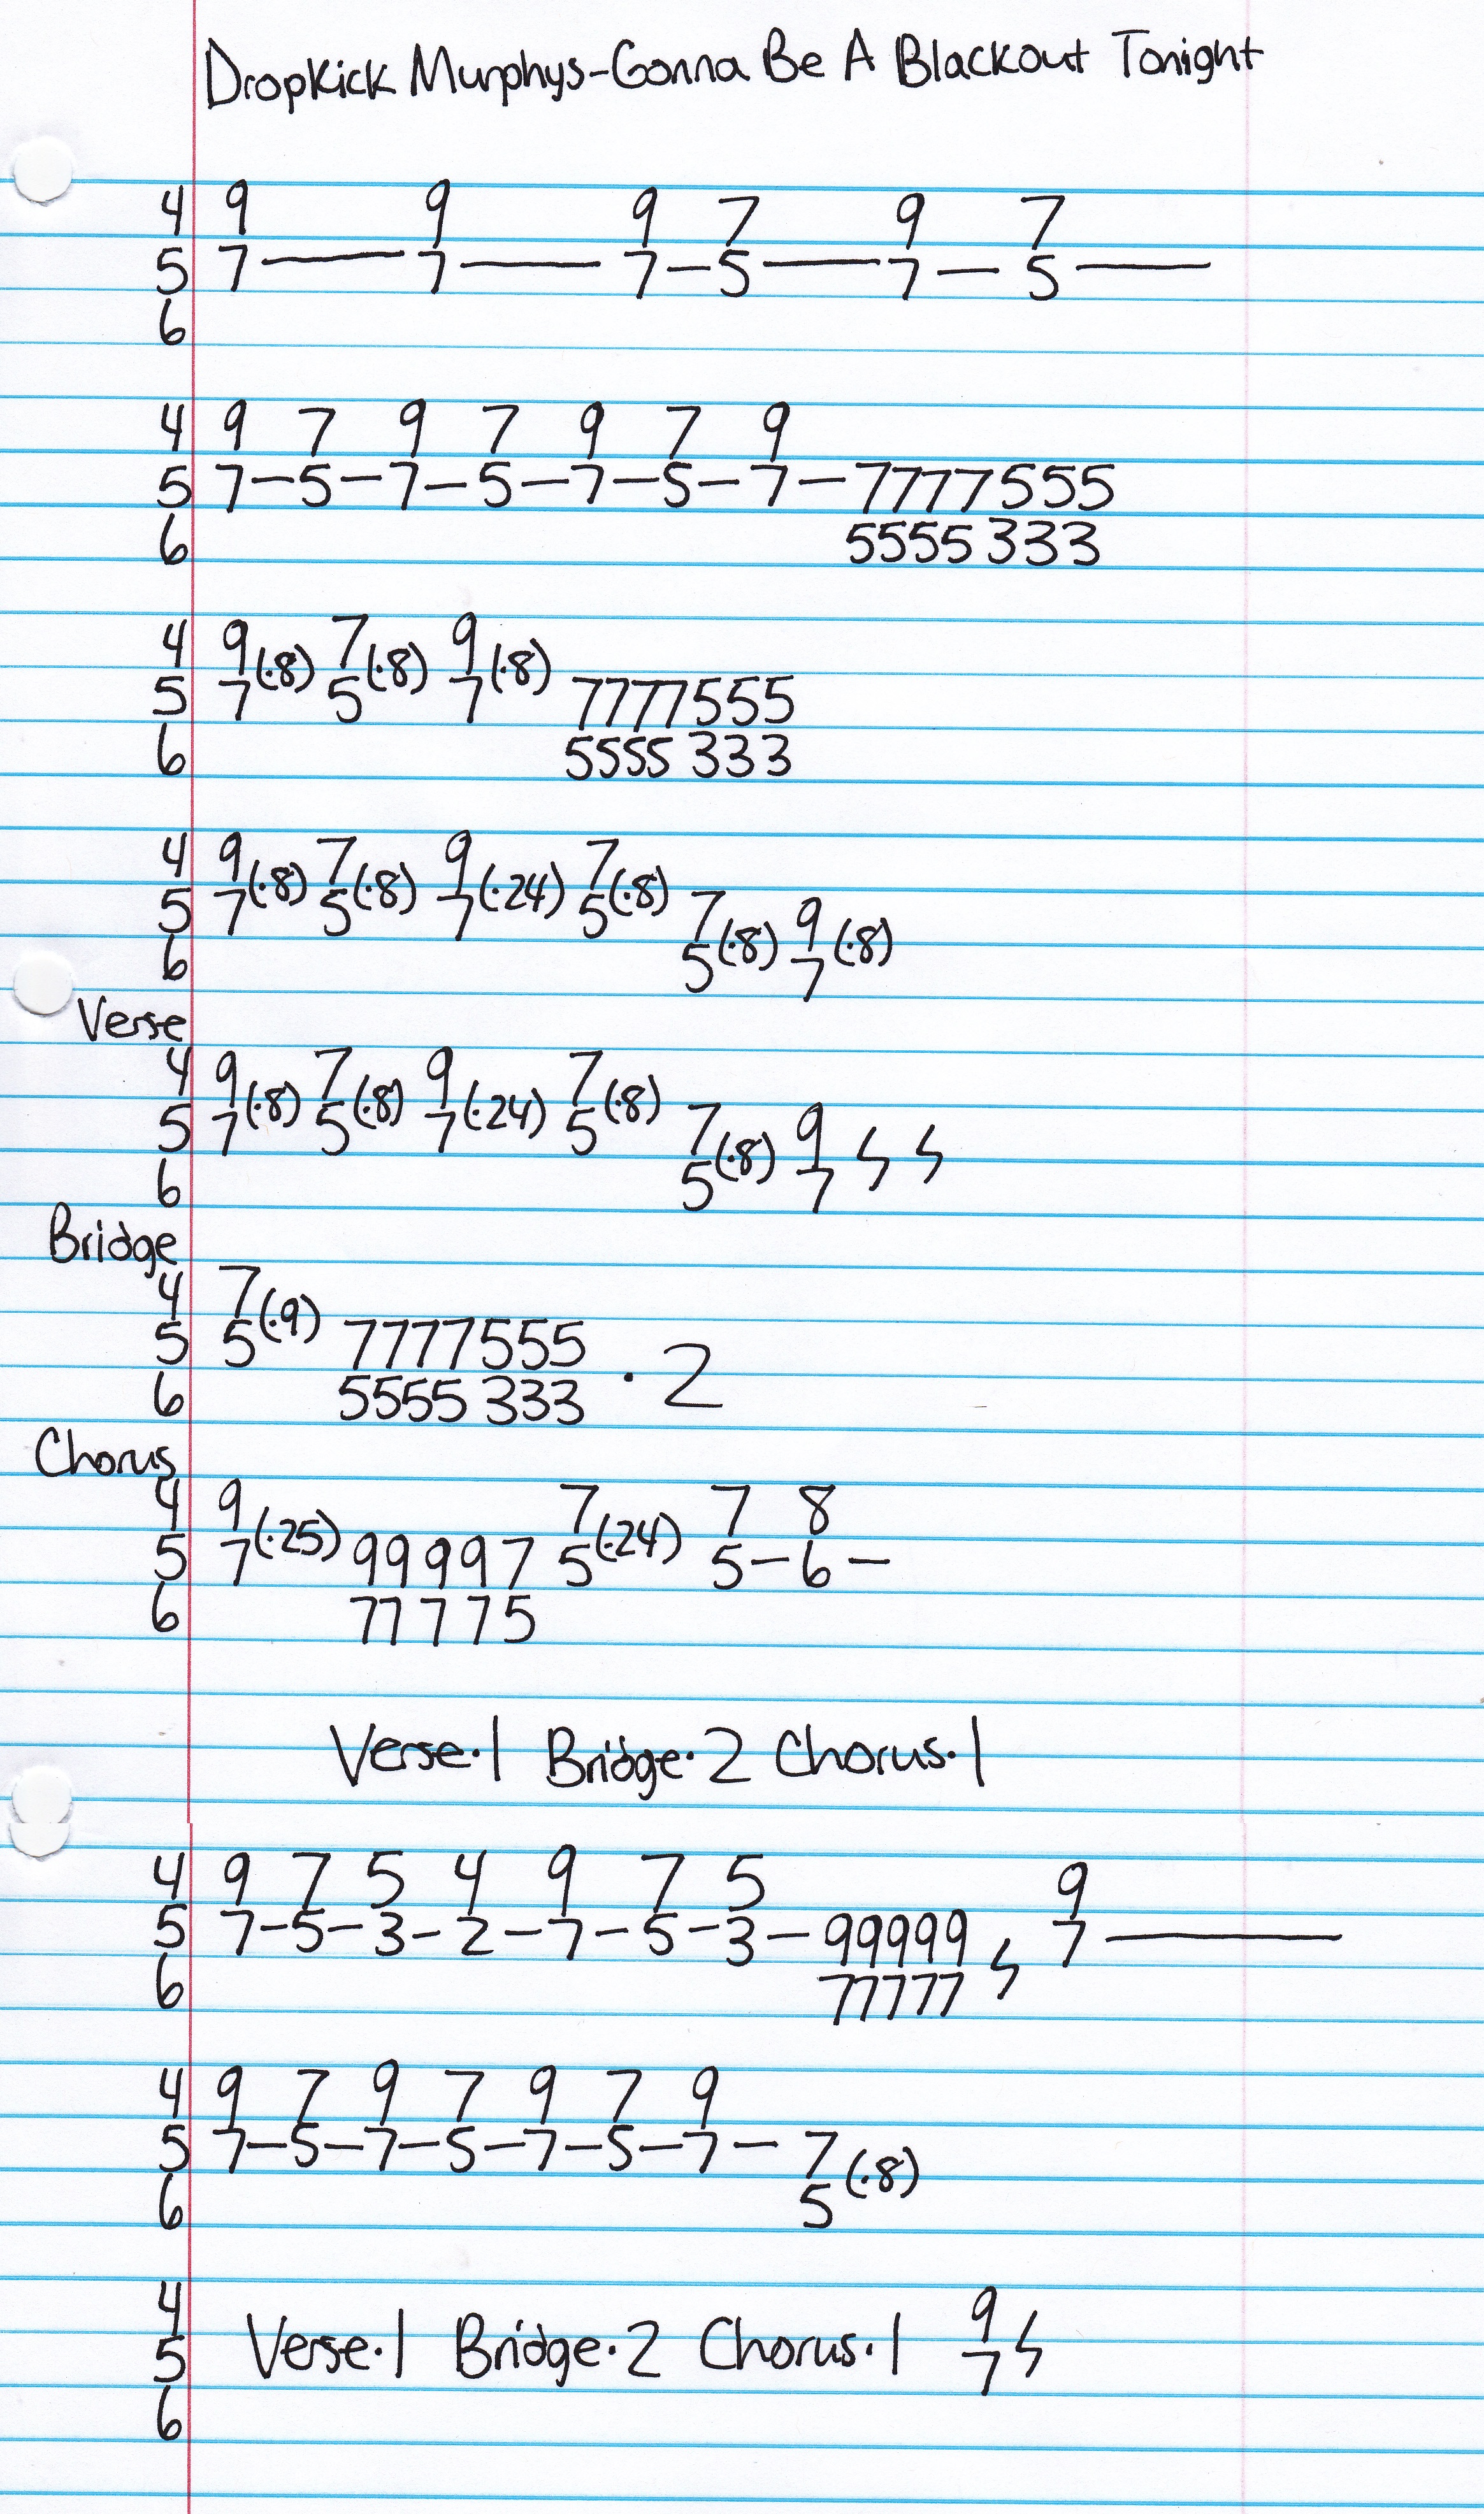 Dropkick Murphys-Gonna Be A Blackout Tonight
4 9 9 9 7 9 7
5 7 — 7 — 7 - 5 — 7 - 5 —
6
4 9 7 9 7 9 7 9
5 7-5-7-5-7-5-7-7777555
6 5555333
4 9 7 9
5 7(·8) 5(·8) 7(·8) 7777555
6 5555333
4 9 7 9 7
5 7(·8) 5(·8) 7(·24) 5(·8) 7 9
6 5(·8) 7(·8)
Verse
4 9 7 9 7
5 7(·8) 5(·8) 7(·24) 5(·8) 7 9
6 5(·8) 7 𝄽 𝄽
Bridge
4 7
5 5(·9) 7777555
6 5555333 ·2
Chorus
4 9 7 7 8
5 7(·25) 99997 5(·24) 5-6-
6 77775
Verse·1 Bridge·2 Chorus·1
4 9 7 5 4 9 7 5 9
5 7-5-3-2-7-5-3-99999 𝄽 7 —
6 77777
4 9 7 9 7 9 7 9
5 7-5-7-5-7-5-7- 7
6 5(·8)
4 9
5 Verse·1 Bridge·2 Chorus·1 7 𝄽
6